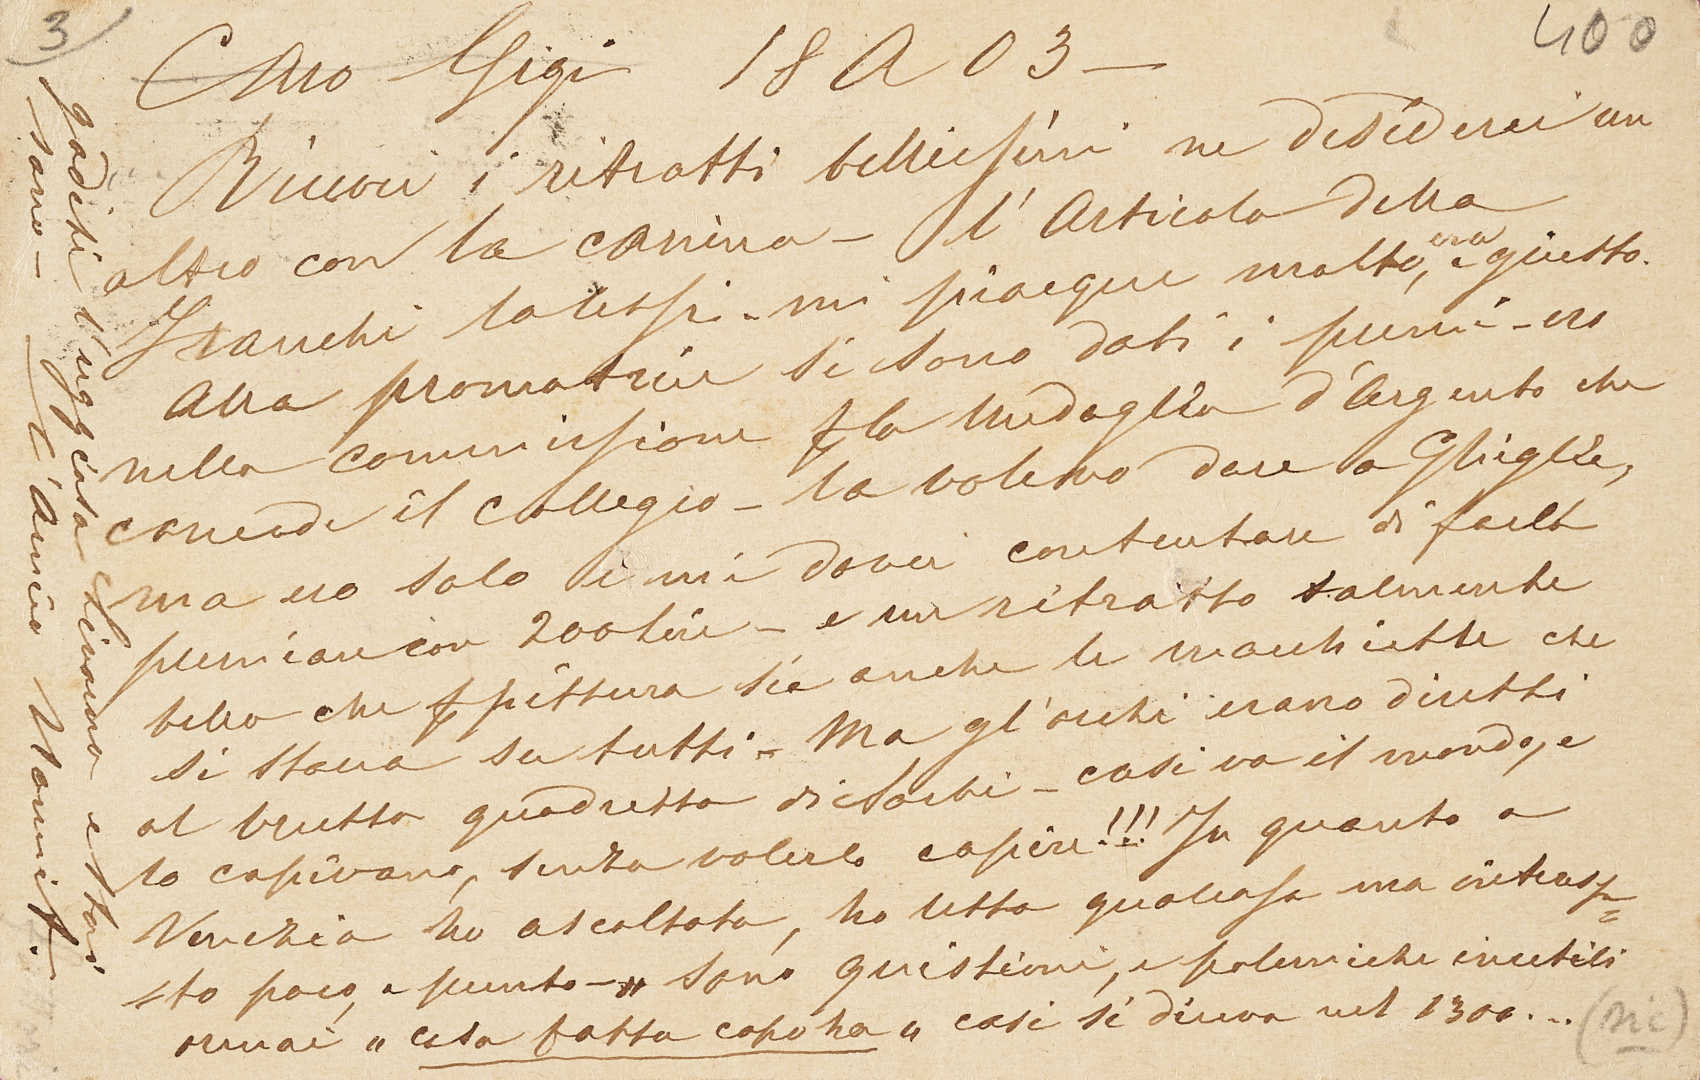 3)
400
Caro Gigi 18 A 03 —
Ricevei i ritratti bellissimi ne desidererei un
altro con la canina — l'Articolo della
Franchi mi piacque molto, era e giusto.
Alla promotrice si sono dati i premi — ero
nella commissione p la Medaglia d'Argento che
concede il Collegio — la volevo dare a Ghiglia,
ma ero solo e mi dovei contentare di farlo
premiare con 200 lire — e un ritratto talmente
bello che p pittura sia anche le macchiette che
si stava su tutti. Ma gl'occhi erano diretti
al brutto quadretto di — così va il mondo, e
lo capivano, senza volerlo capire!!! In quanto a
Venezia ho ascoltato, ho letto qualcosa ma
sto poco, e punto — " sono quistioni, e polemiche inutili
ormai " cosa fatta capo ha " così si diceva nel 1300...
(ni)
goditi l'uggiosa e stai
sano — L'Amico Nomit.